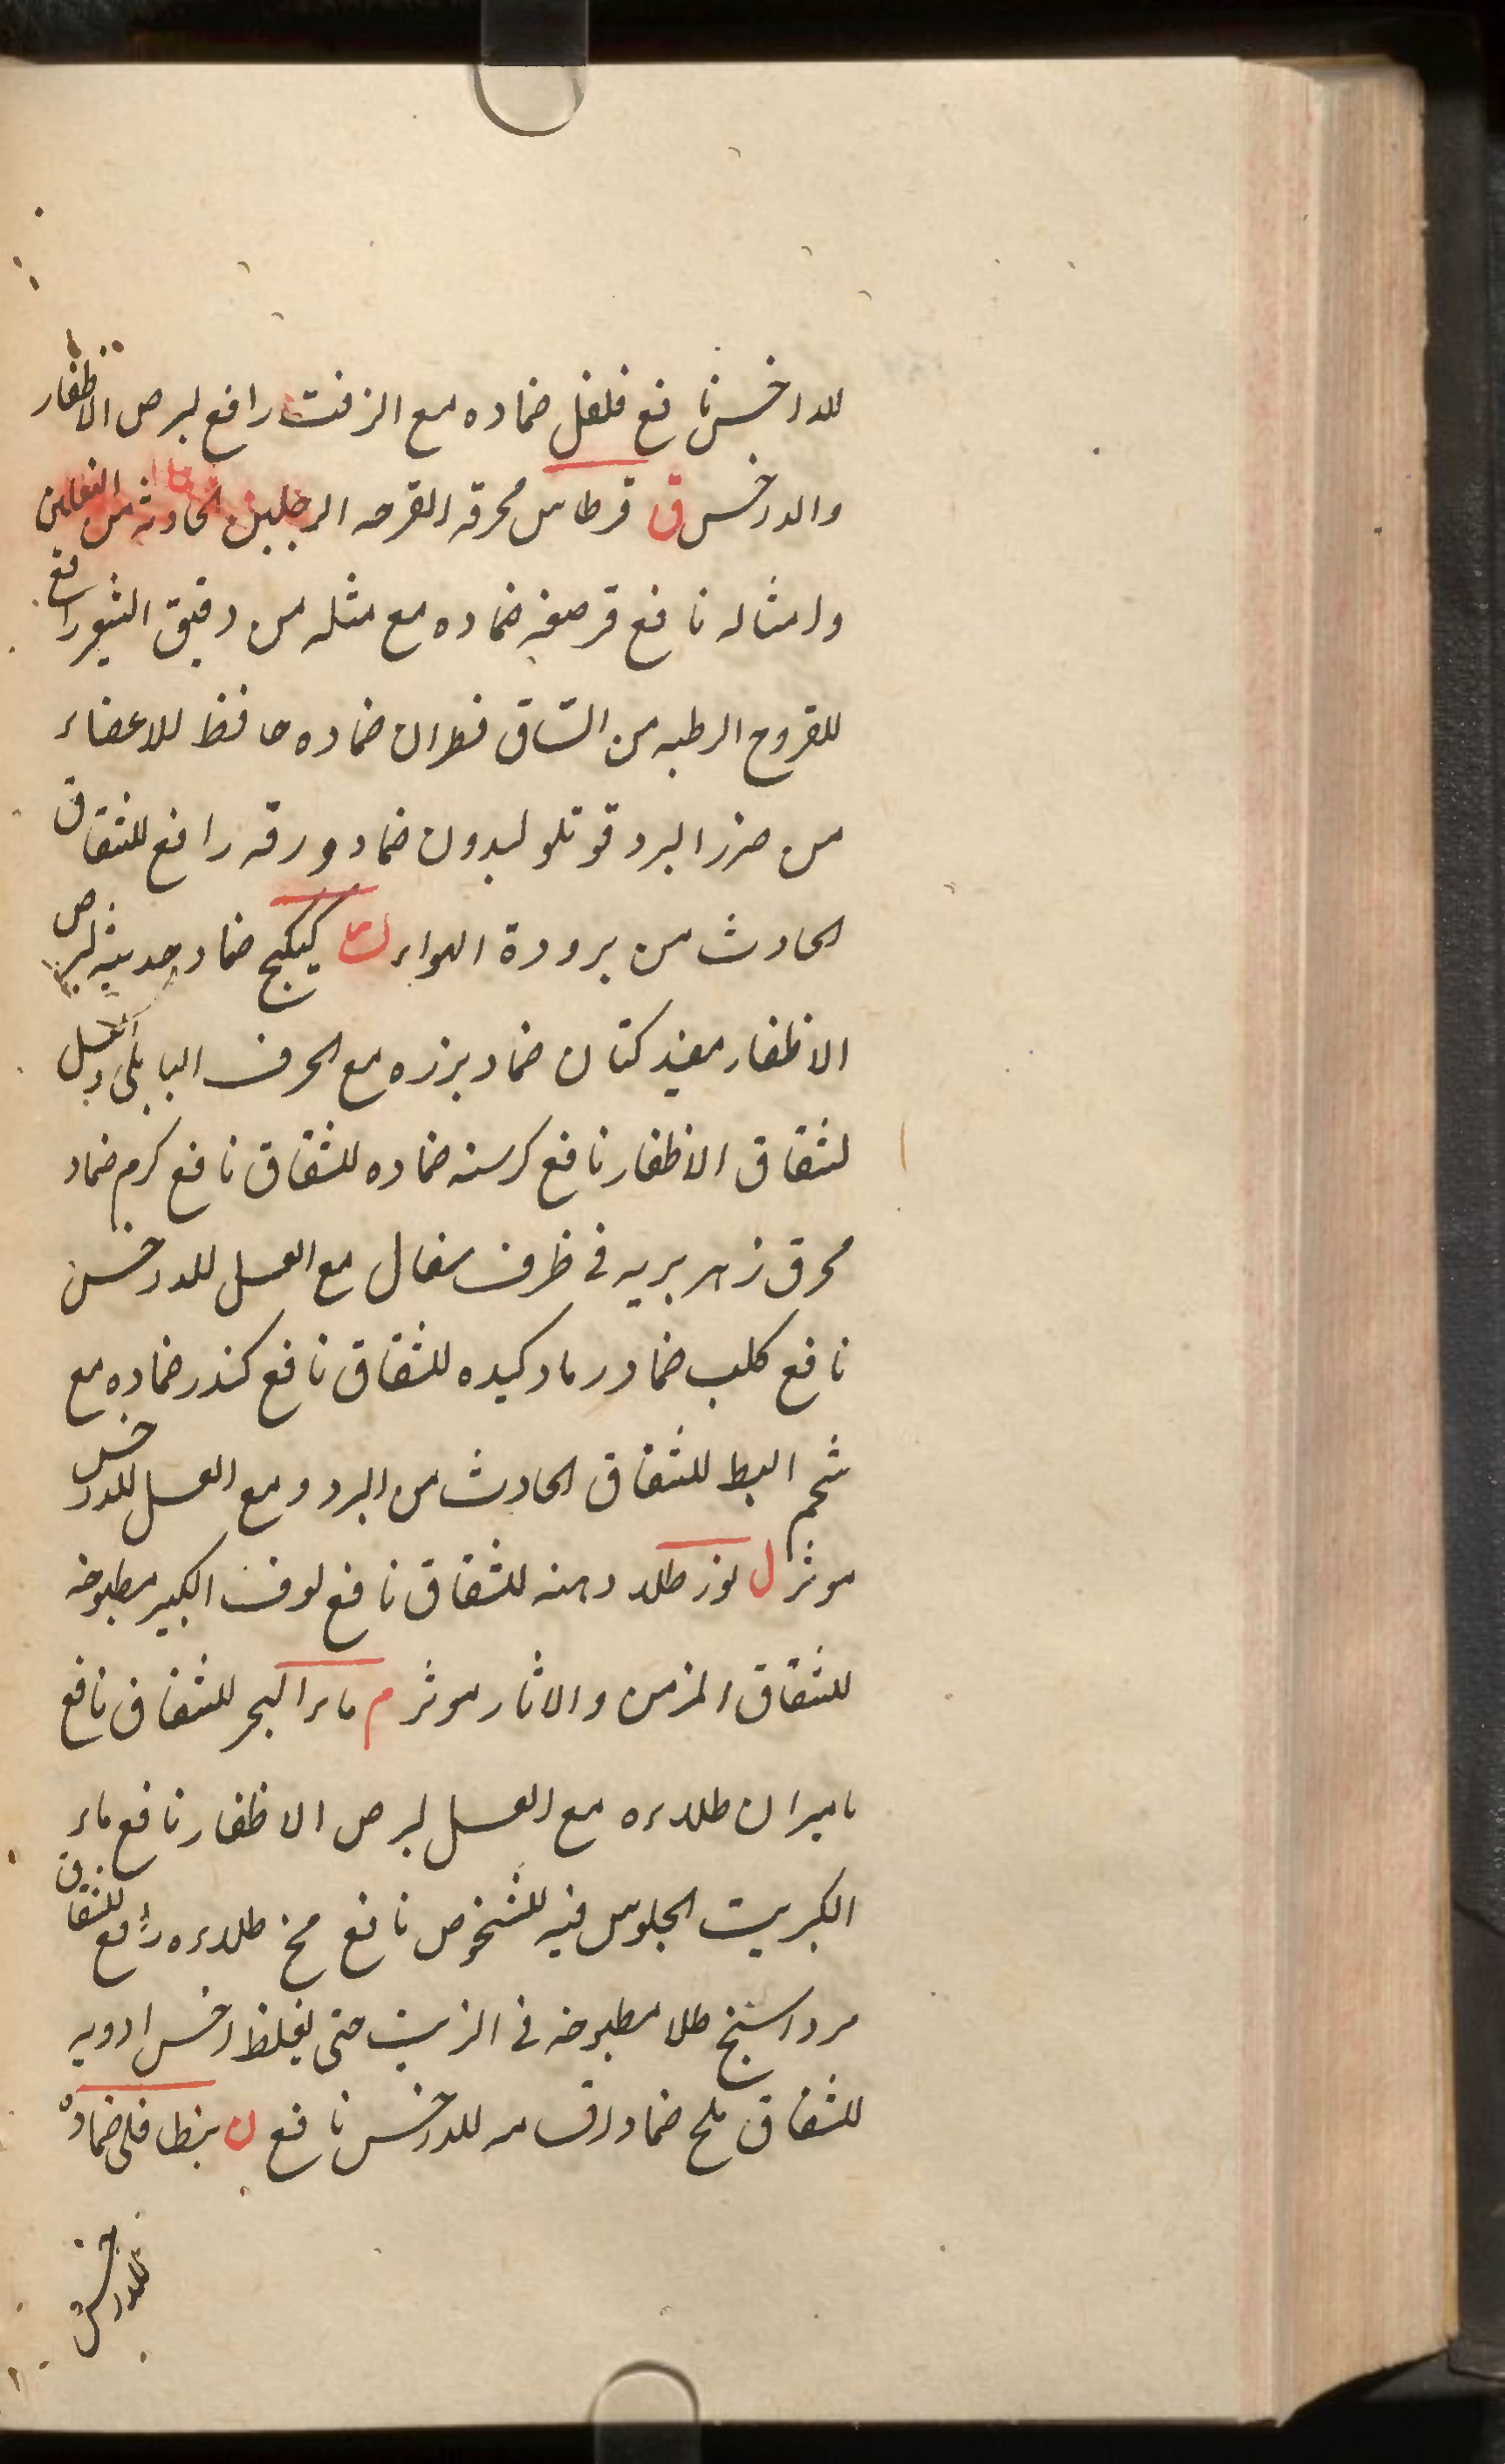 للداخس نافع فلفل ضماده مع الزفت رافع لبرص الاظفار
والدرخس ق قرطاس محرقه القرحه الرجلين الحادثه من النعلين
وامثاله نافع قرصعنه ضماده مع مثله من دقيق الشعير رافع
للقروح الرطبه من الساق قطران ضماده حافظ للاعضاء
من ضرر البرد قوتلوليدون ضماد ورقه رافع للشقاق
الحادث من برودة الهواء ك كبيكج ضماد حديثه لبرص
الاظفار مفيد كتان ضماد بزره مع الحرف البابلى والعسل
لشقاق الاظفار نافع كرسنه ضماده للشقاق نافع كرم ضماد
محرق زهر بريه فى ظرف سفال مع العسل للدرخس
نافع كلب ضماد رماد كبده للشقاق نافع كندر ضماده مع
شحم البط للشقاق الحادث من البرد ومع العسل للدرخس
موثر ل لوز طلاء دهنه للشقاق نافع لوف الكبير مطبوخه
للشقاق المزمن والاثار موثر م ماء البحر للشقاق نافع
ماميران طلاءه مع العسل لبرص الاظفار نافع ماء
الكبريت الجلوس فيه للشخوص نافع مخ طلاءه رافع للشقاق
مرداسنج طلا مطبوخه فى الزيت حتى يغلظ اخس ادويه
للشقاق ملح ضماد اقسامه للدرخس نافع ن نبطافلى ضماده
للدرخس